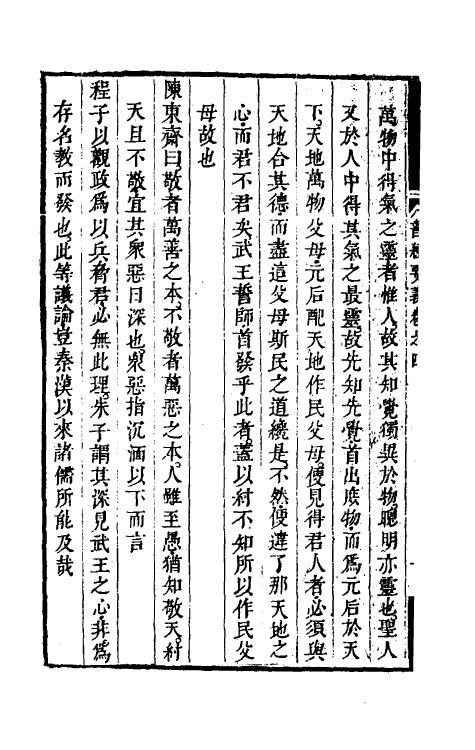 萬物中得氣之靈者惟人故其知覺獨異於物聰明亦靈也聖人
又於人中得其氣之最靈故先知先覺首出庶物而爲元后於天
下天地萬物父母元后配天地作民父母便見得君人者必須與
天地合其德而盡這父母斯民之道纔是不然便違了那天地之
心而君不君矣武王誓師首發乎此者蓋以紂不知所以作民父
母故也
陳東齋曰敬者萬善之本不敬者萬惡之本人雖至愚猶知敬天紂
天且不敬宜其衆惡日深也衆惡指沉湎以下而言
程子以觀政爲以兵脅君必無此理朱子謂其深見武王之心非爲
存名敎而發也此等議論豈秦漢以來諸儒所能及哉